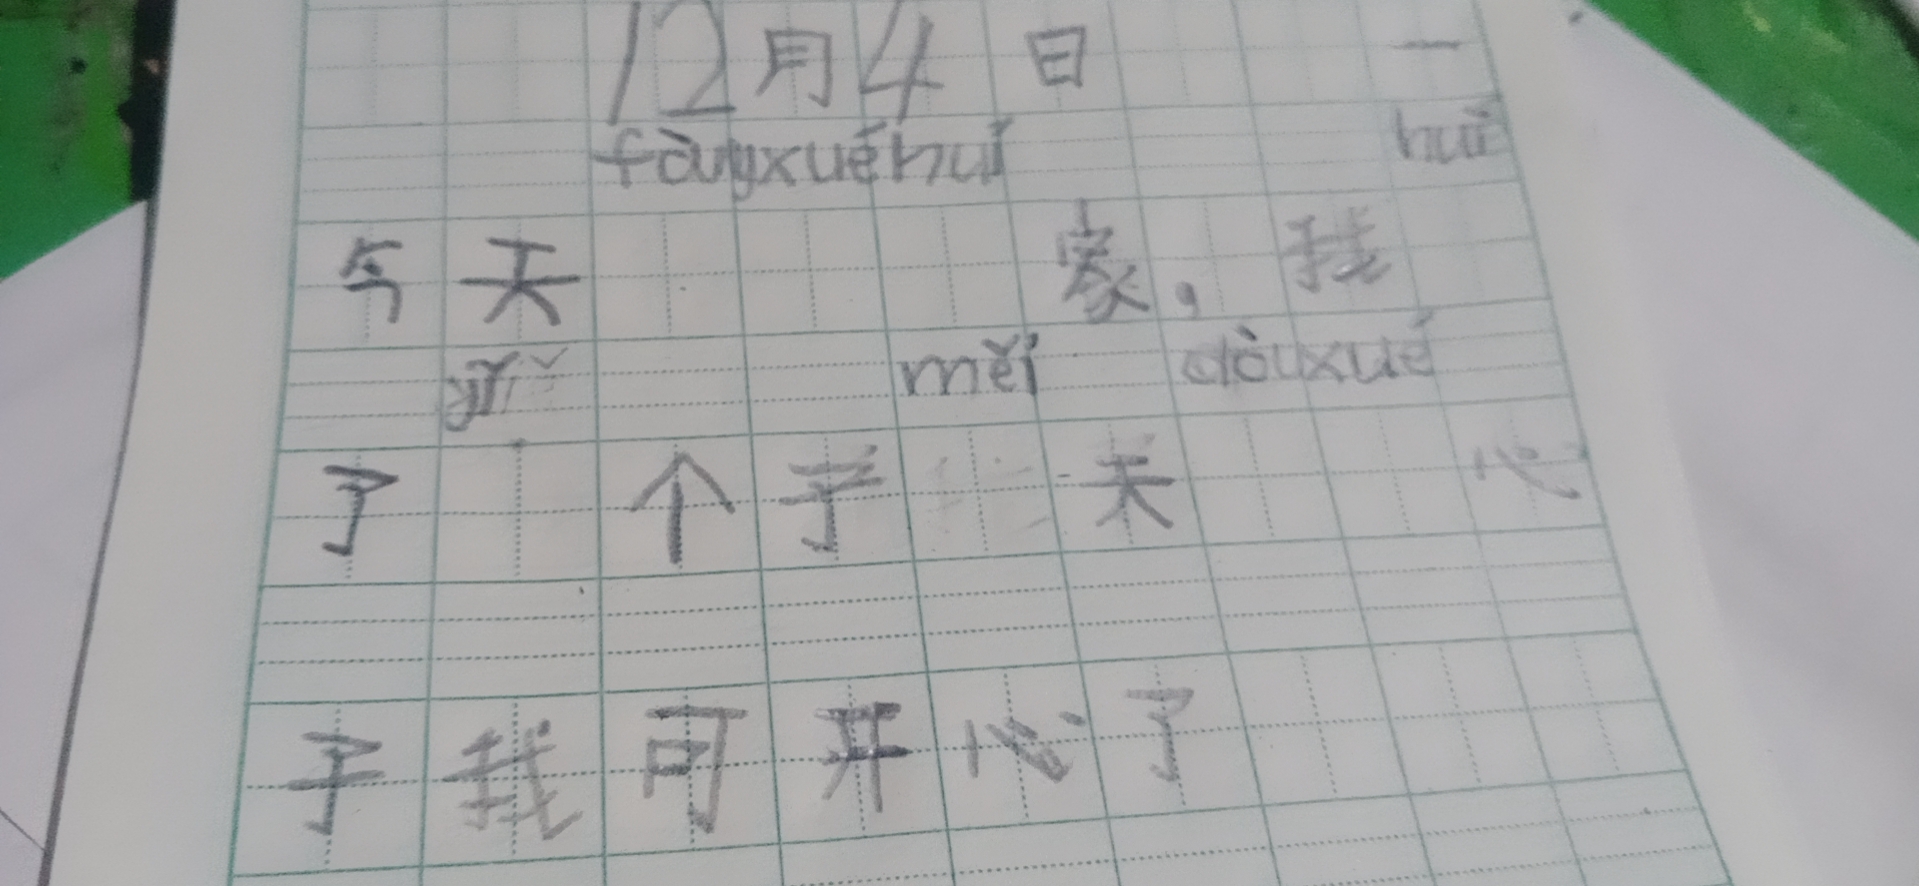 12月4日 一
fàngxuéhuí huì
今天 家，我
měi dàuxué
了 个字 天 心
子我可开心了